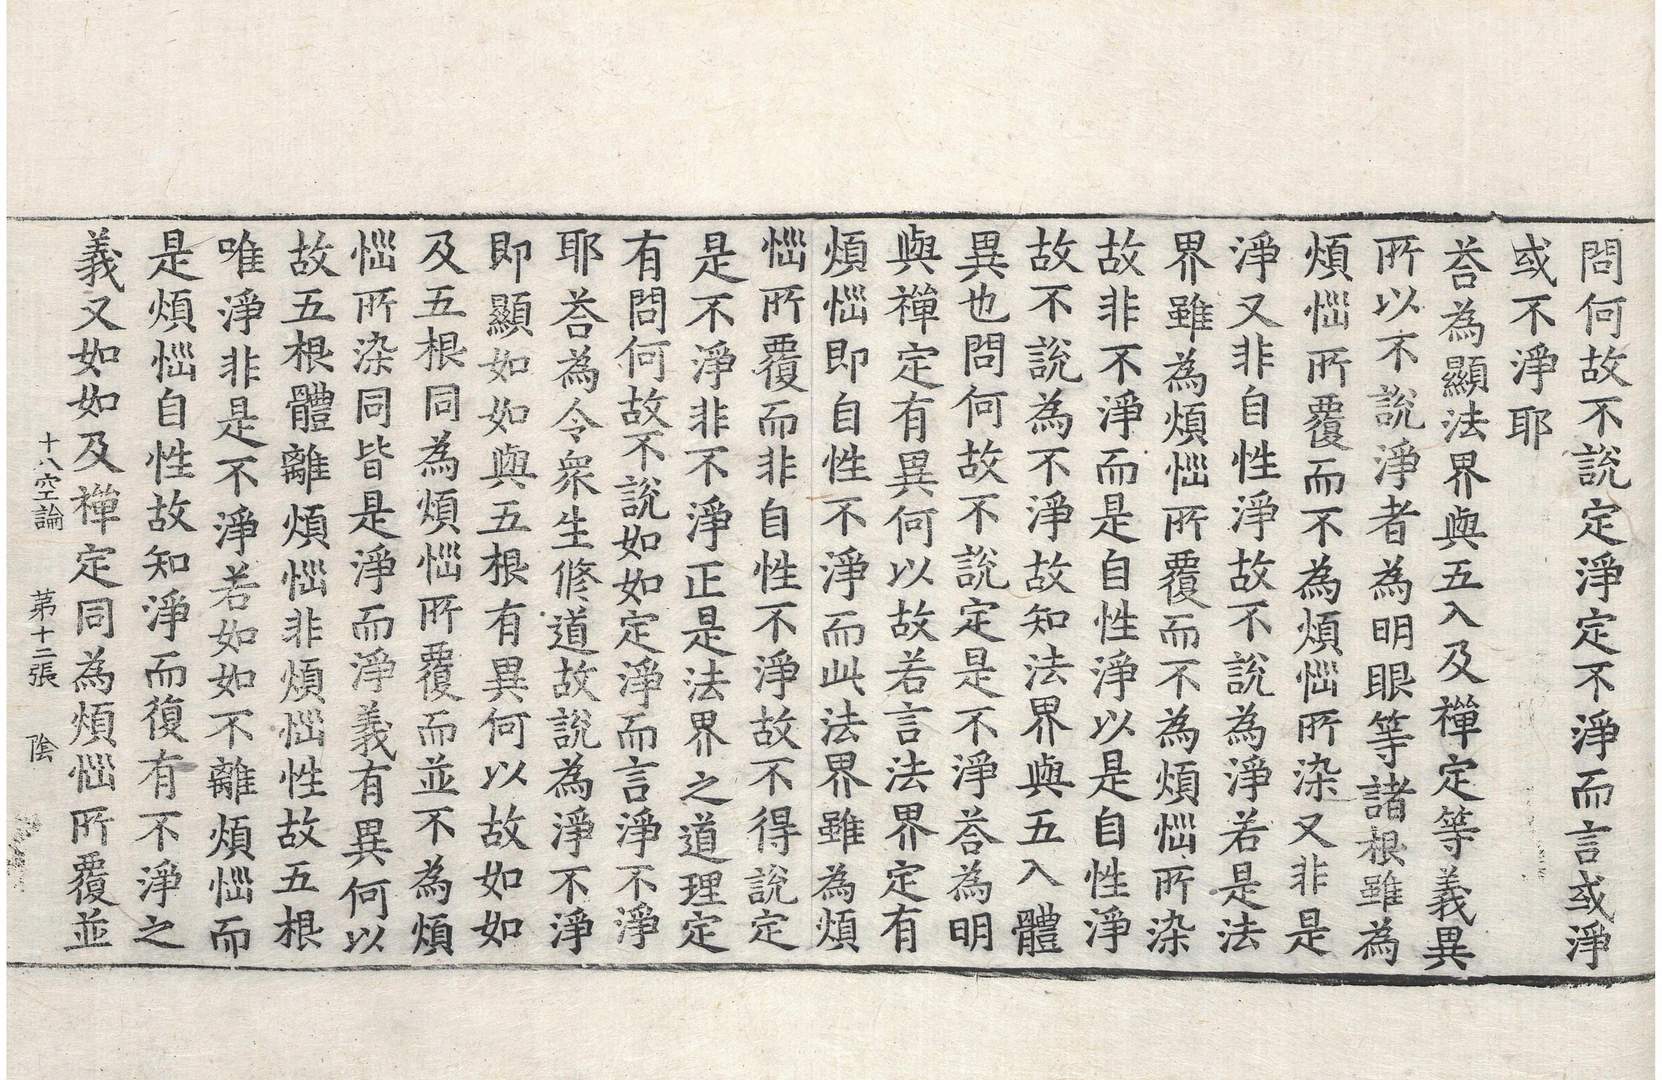 問何故不說定淨定不淨而言或淨
或不淨耶
荅為顯法界與五入及禪定等義異
所以不說淨者為明眼等諸根雖為
煩惱所覆而不為煩惱所染又非是
淨又非自性淨故不說為淨若是法
界雖為煩惱所覆而不為煩惱所染
故非不淨而是自性淨以是自性淨
故不說為不淨故知法界與五入體
異也問何故不說定是不淨荅為明
與禪定有異何以故若言法界定有
煩惱即自性不淨而此法界雖為煩
惱所覆而非自性不淨故不得說定
是不淨非不淨正是法界之道理定
有問何故不說如如定淨而言淨不淨
耶荅為令衆生修道故說為淨不淨
即顯如如與五根有異何以故如如
及五根同為煩惱所覆而並不為煩
惱所染同皆是淨而淨義有異何以
故五根體離煩惱非煩惱性故五根
唯淨非是不淨若如如不離煩惱而
是煩惱自性故知淨而復有不淨之
義又如如及禪定同為煩惱所覆並
十八空論 第十二張 陰